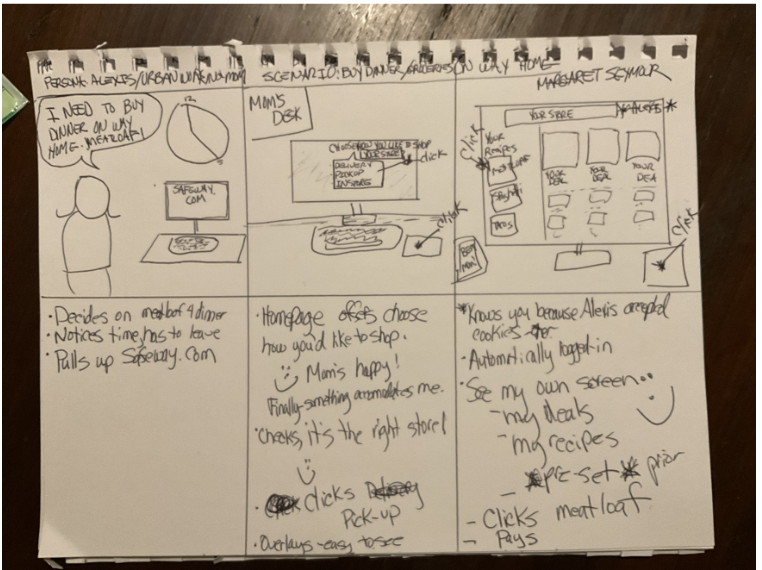 PERSONA: ALEXIS/URBAN WORKING MOM
SCENARIO: BUY DINNER/GROCERIES ON WAY HOME
MARGARET SEYMOUR
I NEED TO BUY
DINNER ON WAY
HOME. MEATLOAF!
12
SAFEWAY.
COM
MOM'S
DESK
CHOOSE HOW YOU LIKE TO SHOP
YOUR STORE
DELIVERY
PICKUP
INSTORE
click
click
YOUR STORE
ALEXIS *
Click
YOUR
RECIPES
MEATLOAF
TACOS
YOUR
DEAL
YOUR
DEAL
YOUR
DEA
BEST
MOM
Click
· Decides on meatloaf 4 dinner
· Notices time, has to leave
· Pulls up Safeway.com
· Homepage offers choose
how you'd like to shop.
Mom's happy!
Finally-something accomodates me.
· Checks, it's the right store!
· Clicks
Pick-up
· Overlays-easy to see
* Knows you because Alexis accepted
cookies
· Automatically logged-in
· See my own screen..
- my deals
- my recipes
- pre-set prior
- Clicks meatloaf
- Pays